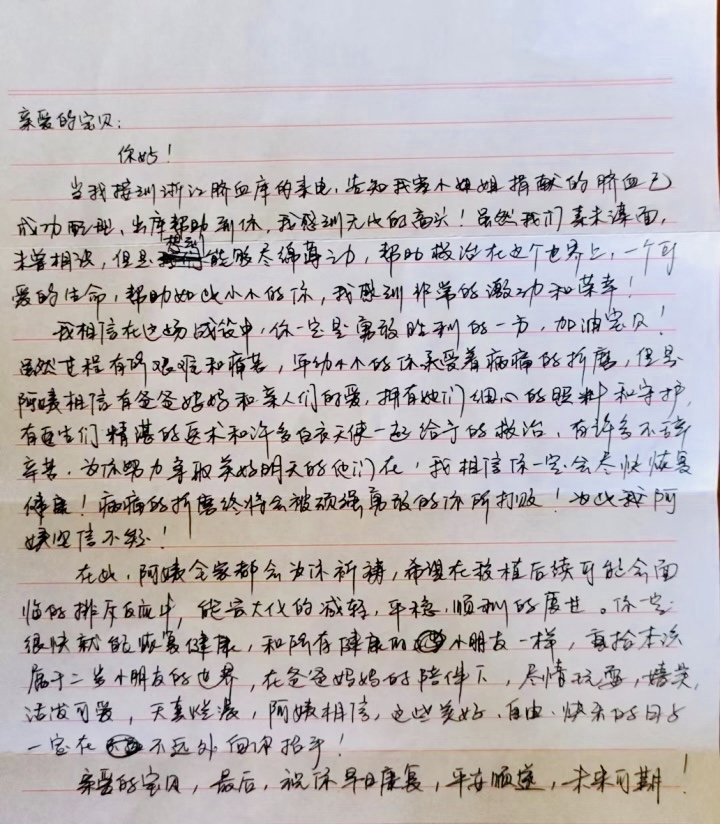 亲爱的宝贝：
你好！
当我接到浙江脐血库的来电，告知我家小姐姐捐献的脐血已
成功配型，出库帮助到你，我感到无比的高兴！虽然我们素未谋面，
未曾相识，但是想到能够尽绵薄之力，帮助救治在这个世界上，一个可
爱的生命，帮助如此小小的你，我感到非常的激动和荣幸！
我相信在这场战役中，你一定是勇敢胜利的一方，加油宝贝！
虽然过程有所艰难和痛苦，年幼小小的你承受着病痛的折磨，但是
阿姨相信有爸爸妈妈和亲人们的爱，拥有她们细心的照料和守护，
有医生们精湛的医术和许多白衣天使一起给予的救治，有许多不辞
辛苦，为你努力争取美好明天的他们在，我相信你一定会尽快恢复
健康！病痛的折磨终将会被顽强勇敢的你所打败！为此我阿
姨坚信不移！
在此，阿姨全家都会为你祈祷，希望在移植后续可能会面
临的排斥反应中，能最大化的减轻，平稳，顺利的度过。你一定
很快就能恢复健康，和所有健康的小朋友一样，重拾本该
属于二岁小朋友的世界，在爸爸妈妈的陪伴下，尽情玩耍，嬉笑，
活泼可爱，天真烂漫，阿姨相信，这些美好、自由、快乐的日子
一定在不远处向你招手！
亲爱的宝贝，最后，祝你早日康复，平安顺遂，未来可期！